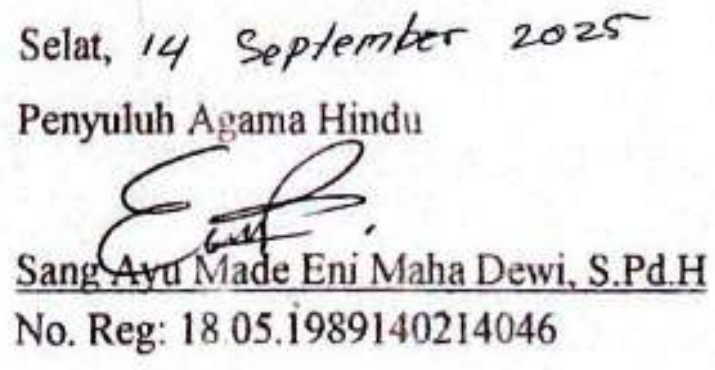 Selat, 14 September 2025
Penyuluh Agama Hindu
Sang Ayu Made Eni Maha Dewi, S.Pd.H
No. Reg: 18.05.1989140214046